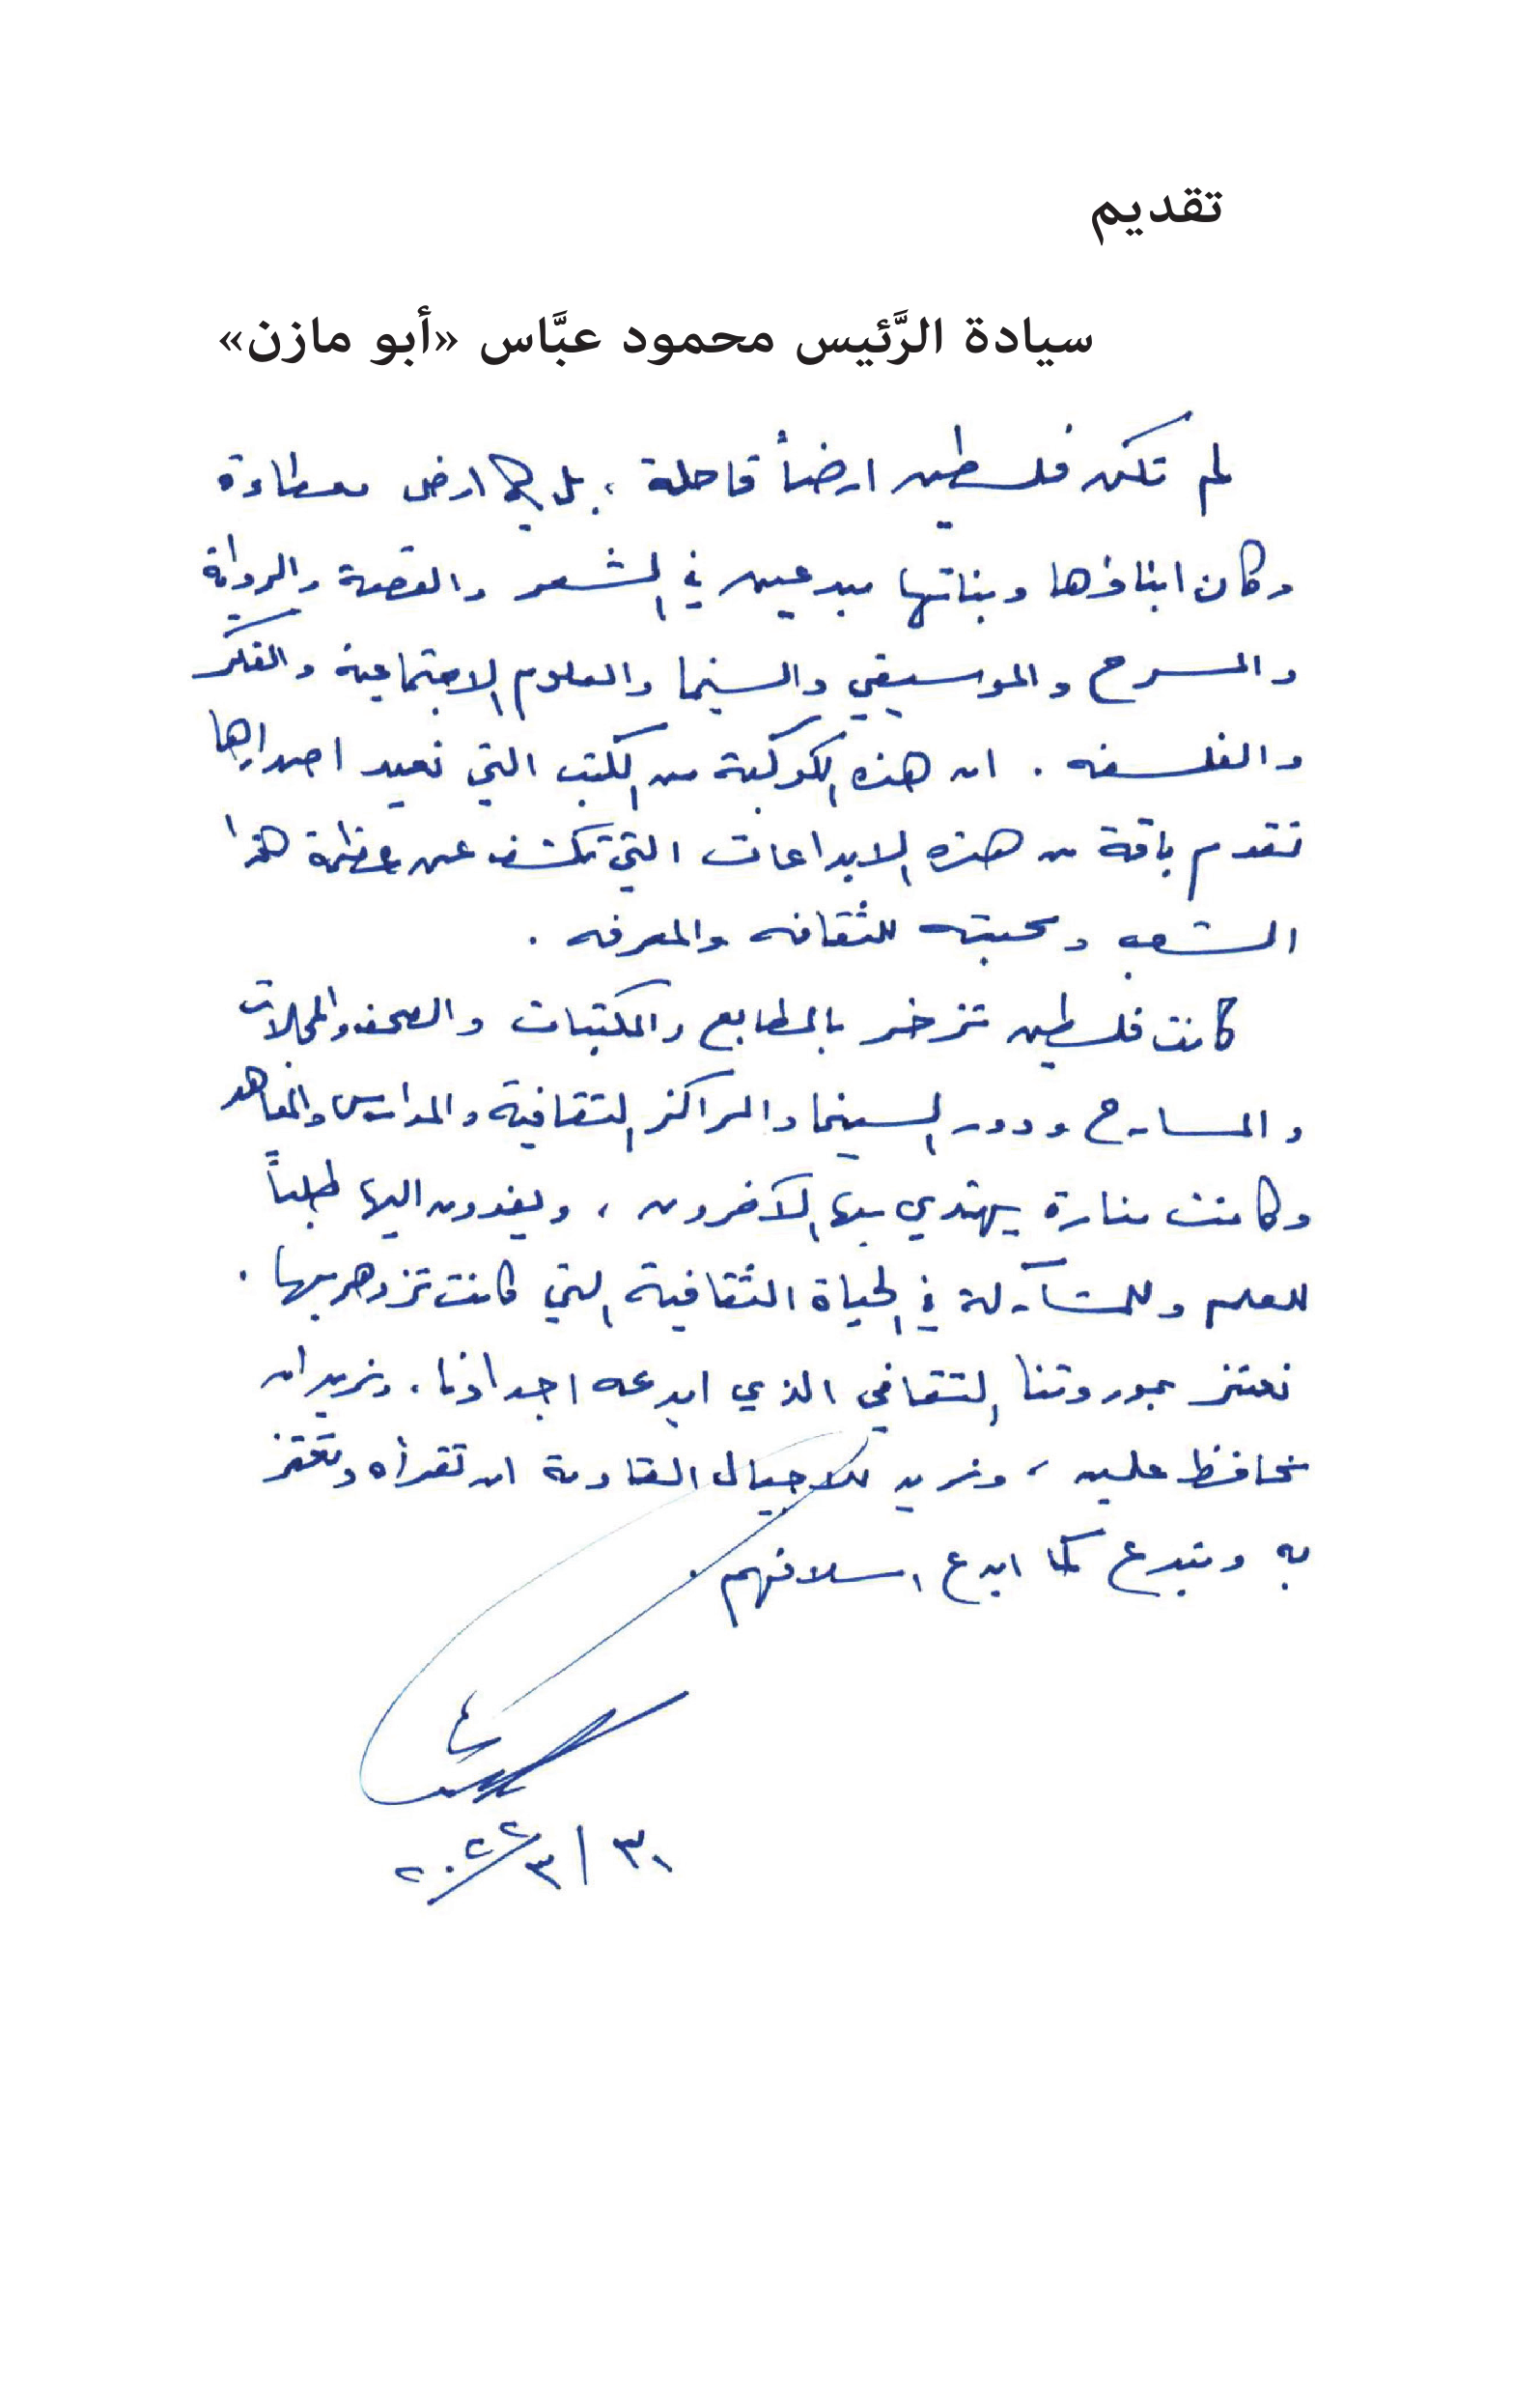 تقديم
سيادة الرَّئيس محمود عبَّاس «أبو مازن»
لم تكن فلسطين ارضاً قاحلة ، بل هي ارض معطاءة
وكان ابناؤها وبناتها مبدعين في الشعر والقصة والرواية
والمسرح والموسيقي والسينما والعلوم الاجتماعية والفكر
والفلسفه . ان هذه الكوكبة من الكتب التي نعيد اصدارها
تقدم باقة من هذه الابداعات التي تكشف عن عظمة هذا
الشعب ومحبته للثقافه والمعرفه .
كانت فلسطين تزخر بالمطابع والمكتبات والصحف والمجلات
والمسارح ودور السينما والمراكز الثقافية والمدارس والمعاهد
وكانت منارة يهتدي بها الآخرون ، ويفدون اليها طلباً
للعلم وللمشاركة في الحياة الثقافية التي كانت تزدهر بها .
نعتز بموروثنا الثقافي الذي ابدعه اجدادنا . ونريد ان
نحافظ عليه ، ونريد للاجيال القادمة ان تقرأه وتعتز
به وتبدع كما ابدع اسلافهم .
٣٠/٣/٢٠٢٢